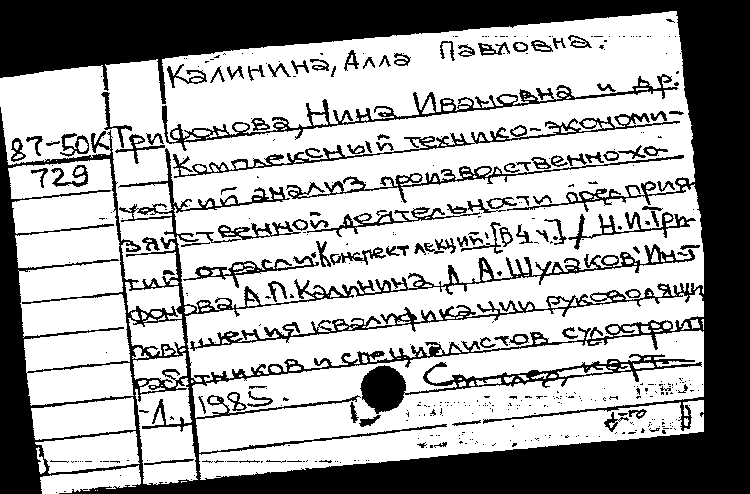 Калинина, Алла Павловна.
87-50К Трифонова, Нина Ивановна и др.
729 Комплексный технико-экономи-
ческий анализ производственно-хо-
зяйственной деятельности предприя-
тий отрасли: Конспект лекций: [В 4 ч.] / Н.И.Три-
фонова, А.П.Калинина, Д.А.Шулаков; Ин-т
повышения квалификации руководящи
работников и специалистов судостроит
-Л., 1985. См. след. карт.